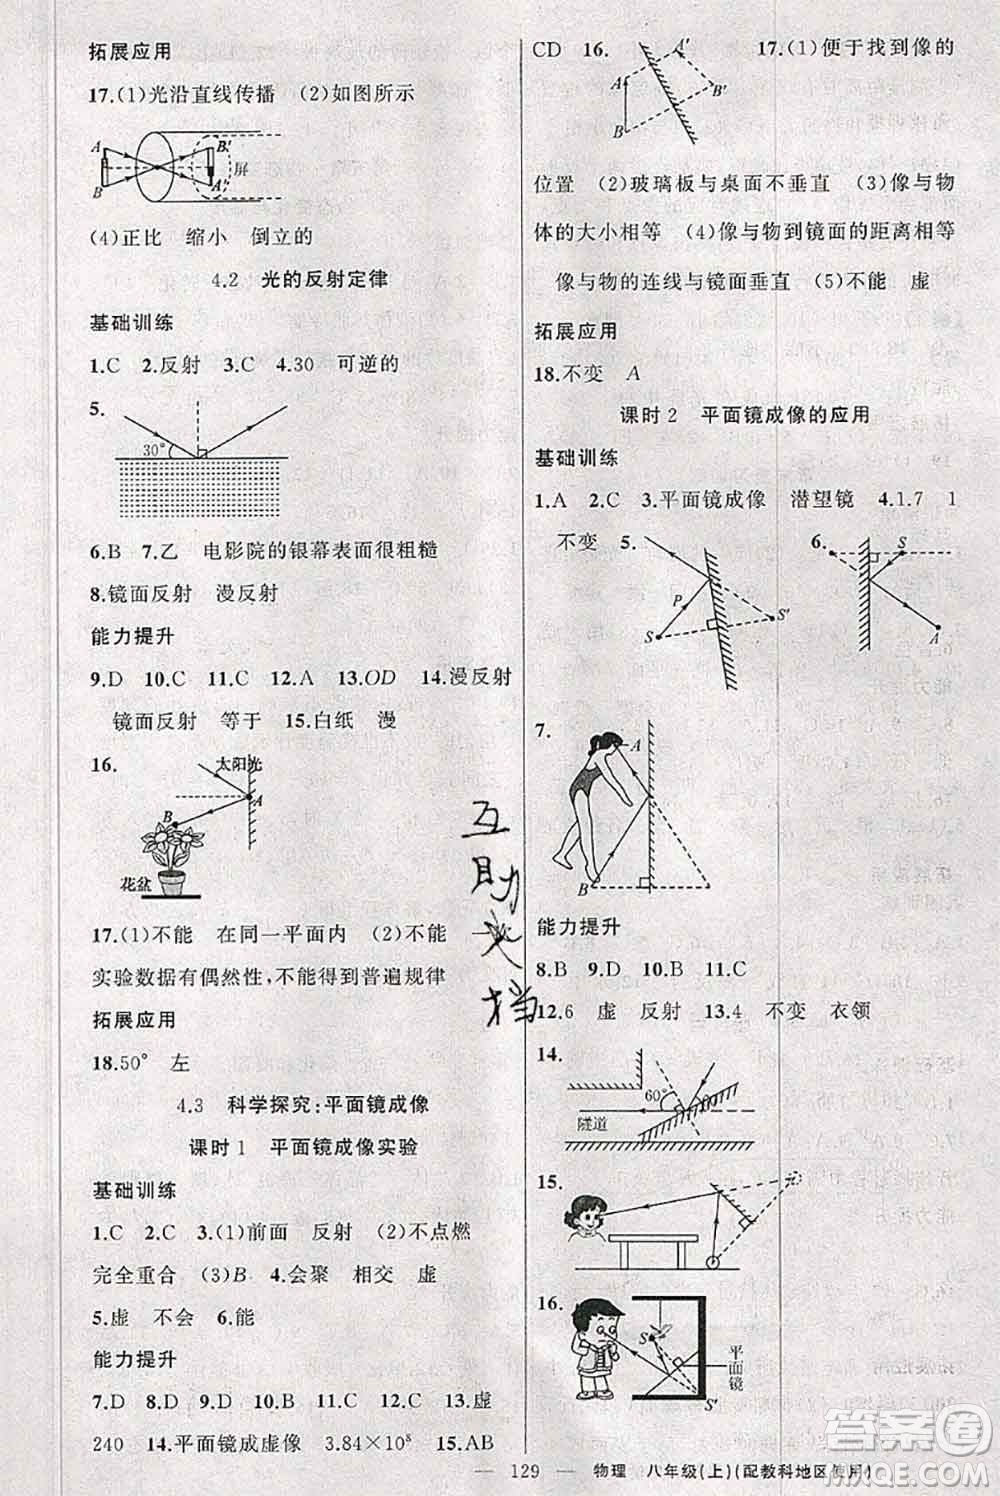 拓展应用
17.(1)光沿直线传播 (2)如图所示
A
B
B′
A′
屏
(4)正比 缩小 倒立的
4.2 光的反射定律
基础训练
1.C 2.反射 3.C 4.30 可逆的
5.
30°
6.B 7.乙 电影院的银幕表面很粗糙
8.镜面反射 漫反射
能力提升
9.D 10.C 11.C 12.A 13.OD 14.漫反射
镜面反射 等于 15.白纸 漫
16.
太阳光
A
B
花盆
17.(1)不能 在同一平面内 (2)不能
实验数据有偶然性,不能得到普遍规律
拓展应用
18.50° 左
4.3 科学探究:平面镜成像
课时1 平面镜成像实验
基础训练
1.C 2.C 3.(1)前面 反射 (2)不点燃
完全重合 (3)B 4.会聚 相交 虚
5.虚 不会 6.能
能力提升
7.D 8.D 9.D 10.B 11.C 12.C 13.虚
240 14.平面镜成虚像 3.84×10⁸ 15.AB
CD 16.
A
B
A′
B′
17.(1)便于找到像的
位置 (2)玻璃板与桌面不垂直 (3)像与物
体的大小相等 (4)像与物到镜面的距离相等
像与物的连线与镜面垂直 (5)不能 虚
拓展应用
18.不变 A
课时2 平面镜成像的应用
基础训练
1.A 2.C 3.平面镜成像 潜望镜 4.1.7 1
不变 5.
P
S
S′
6.
S
A
7.
A
B
能力提升
8.B 9.D 10.B 11.C
12.6 虚 反射 13.4 不变 衣领
14.
60°
隧道
15.
16.
S
平面镜
S′
互助文档
129 物理 八年级(上)(配教科地区使用)
答案圈